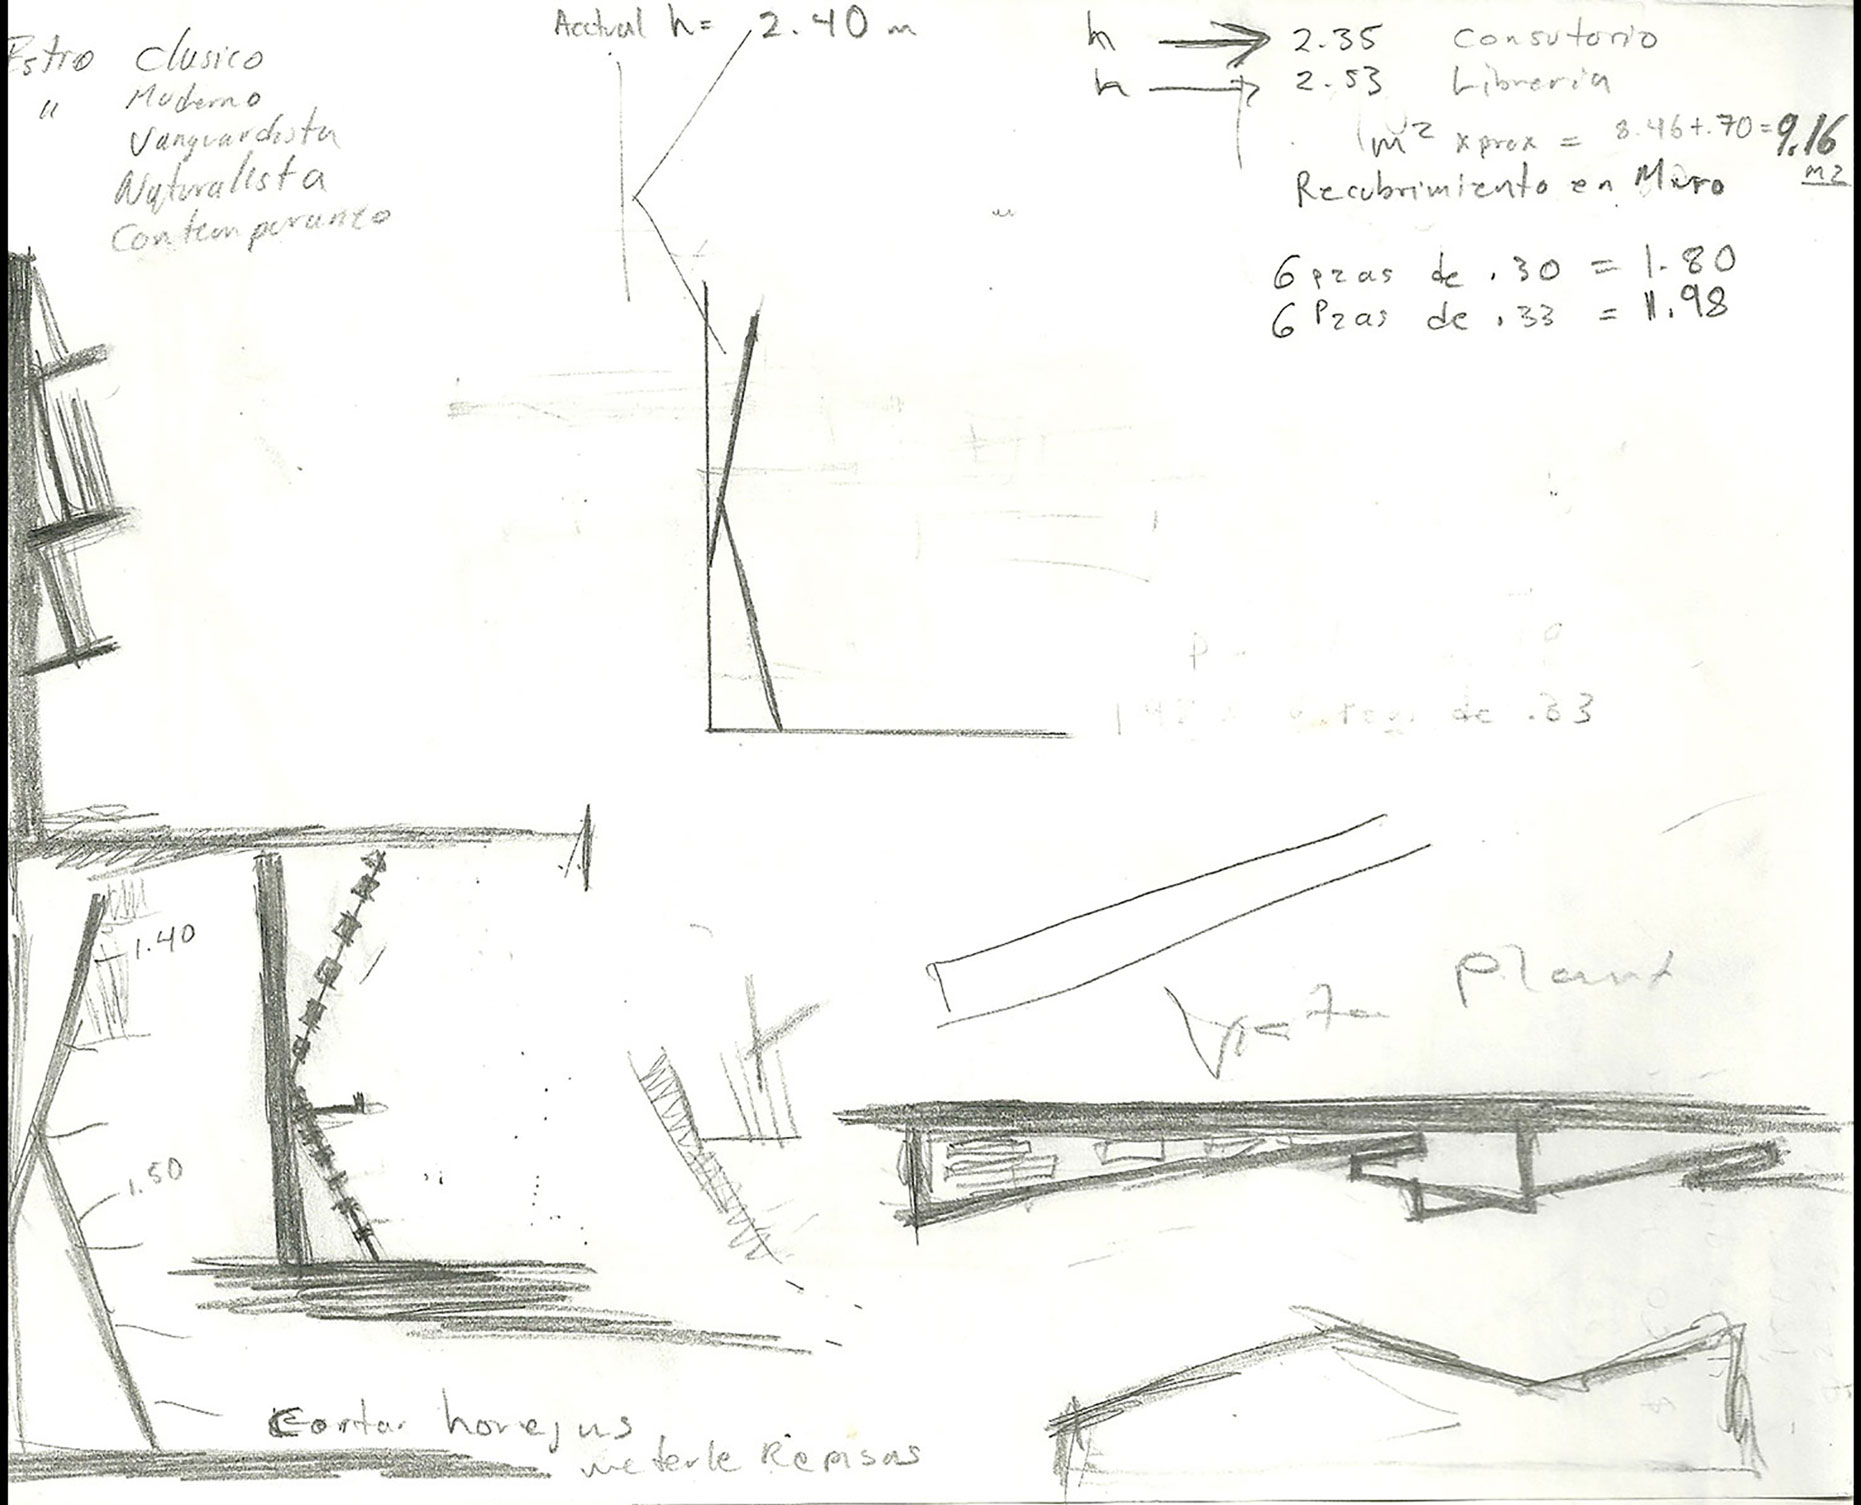 Estro Clasico
" Moderno
Vanguardista
Naturalista
Contemporaneo
Acctual h= 2.40 m
h → 2.35 Consutorio
h → 2.53 Libreria
m² xprox = 8.46+.70=9.16 m2
Recubrimiento en Muro
6 pzas de .30 = 1.80
6 Pzas de .33 = 1.98
de .33
1.40
1.50
Plant
Cortar horejas
meterle Repisas